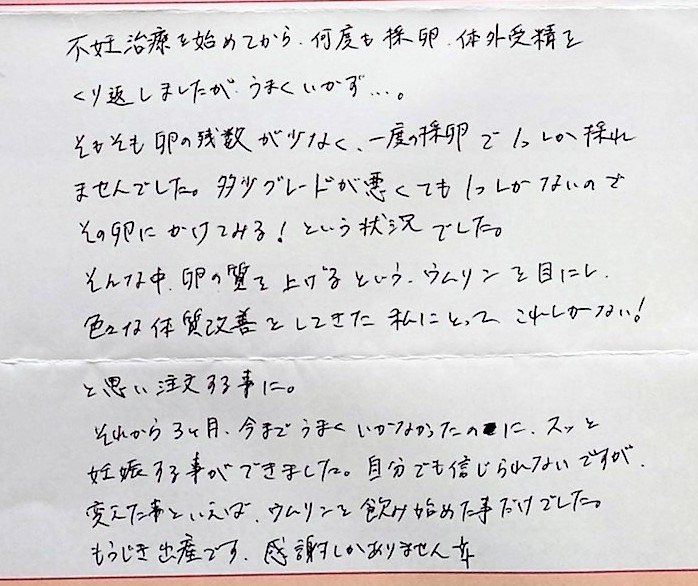 不妊治療を始めてから、何度も採卵、体外受精を
くり返しましたが うまくいかず…。
そもそも卵の残数が少なく、一度の採卵で1つしか採れ
ませんでした。多少グレードが悪くても1つしかないので
その卵にかけてみる!という状況でした。
そんな中、卵の質を上げるという、ウムリンを目にし、
色々な体質改善をしてきた私にとって これしかない!
と思い注文する事に。
それから3ヶ月、今までうまくいかなかったのに、スッと
妊娠する事ができました。自分でも信じられないですが、
変えた事といえば、ウムリンを飲み始めた事だけでした。
もうじき出産です。感謝しかありません